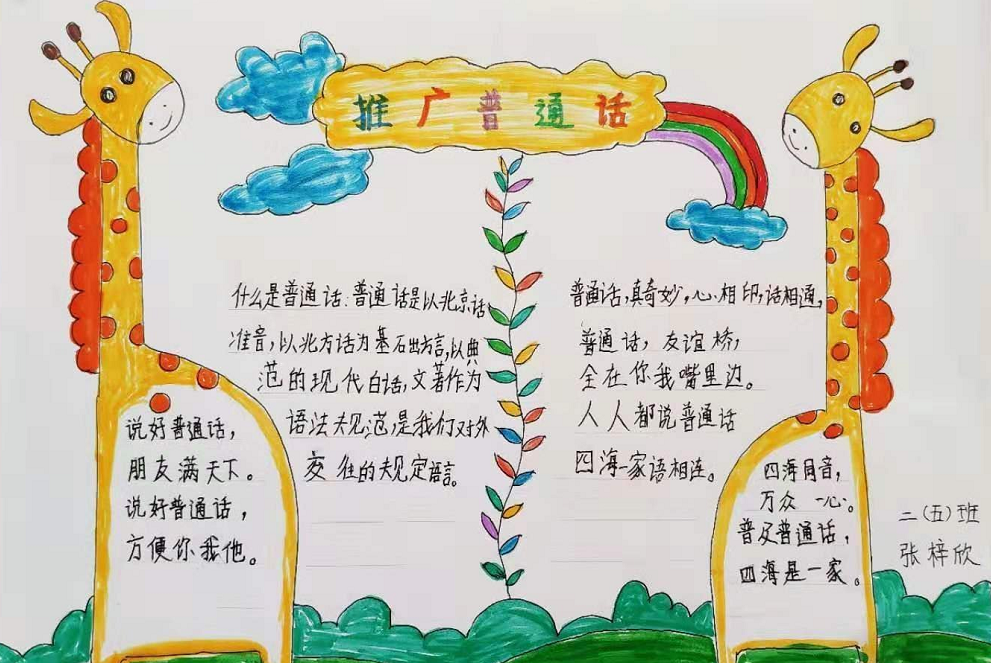 推广普通话
什么是普通话:普通话是以北京话
准音,以北方话为基石出方言,以典
范的现代白话,文著作为
语法夫见范,是我们对外
交往的夫规定语言。
普通话,真奇妙,心相印,话相通,
普通话,友谊桥,
全在你我嘴里边。
人人都说普通话
四海一家语相连。
说好普通话,
朋友满天下。
说好普通话,
方便你我他。
四海同音,
万众一心。
普及普通话,
四海是一家。
二(五)班
张梓欣